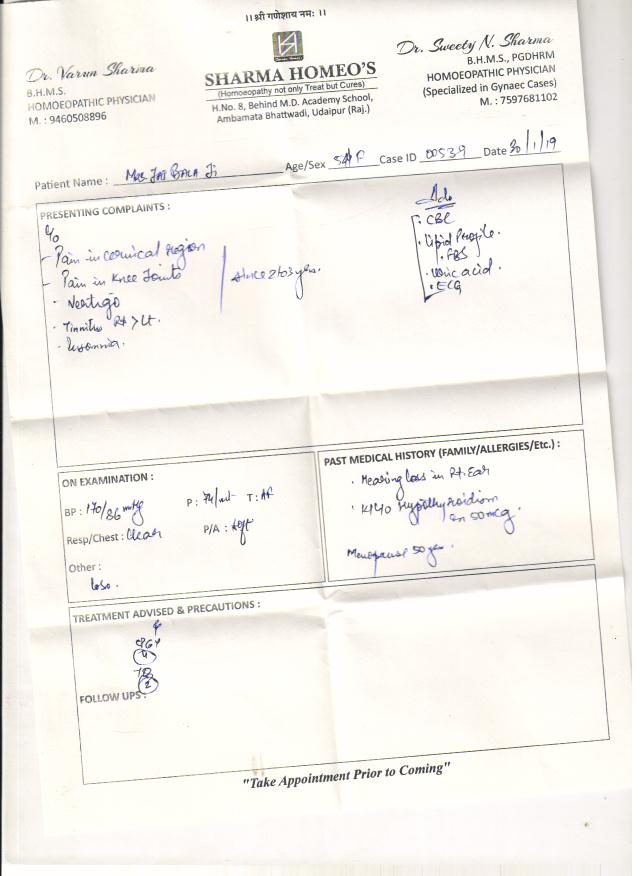 ।। श्री गणेशाय नमः ।।
Dr. Varun Sharma
B.H.M.S.
HOMOEOPATHIC PHYSICIAN
M. : 9460508896
SHARMA HOMEO'S
(Homoeopathy not only Treat but Cures)
H.No. 8, Behind M.D. Academy School,
Ambamata Bhattwadi, Udaipur (Raj.)
Dr. Sweety N. Sharma
B.H.M.S., PGDHRM
HOMOEOPATHIC PHYSICIAN
(Specialized in Gynaec Cases)
M. : 7597681102
Patient Name : Mrs. Jai Bala Ji Age/Sex F Case ID 00539 Date 30/1/19
PRESENTING COMPLAINTS :
C/o
- Pain in cervical region
- Pain in Knee Joints
· Vertigo
· Tinnitus Rt > Lt.
· Insomnia.
since 2 to 3 yrs.
Adv
· CBC
· Lipid Profile.
· FBS
· Uric acid.
· ECG
ON EXAMINATION :
BP : 170/86 mmHg P : 74/mt T : Af
Resp/Chest : Clear P/A : Soft
Other :
PAST MEDICAL HISTORY (FAMILY/ALLERGIES/Etc.) :
· Hearing loss in Rt. Ear
· K/C/O Hypothyroidism
on 50mcg.
Menopause 50 yrs.
TREATMENT ADVISED & PRECAUTIONS :
4
2
FOLLOW UPS :
"Take Appointment Prior to Coming"